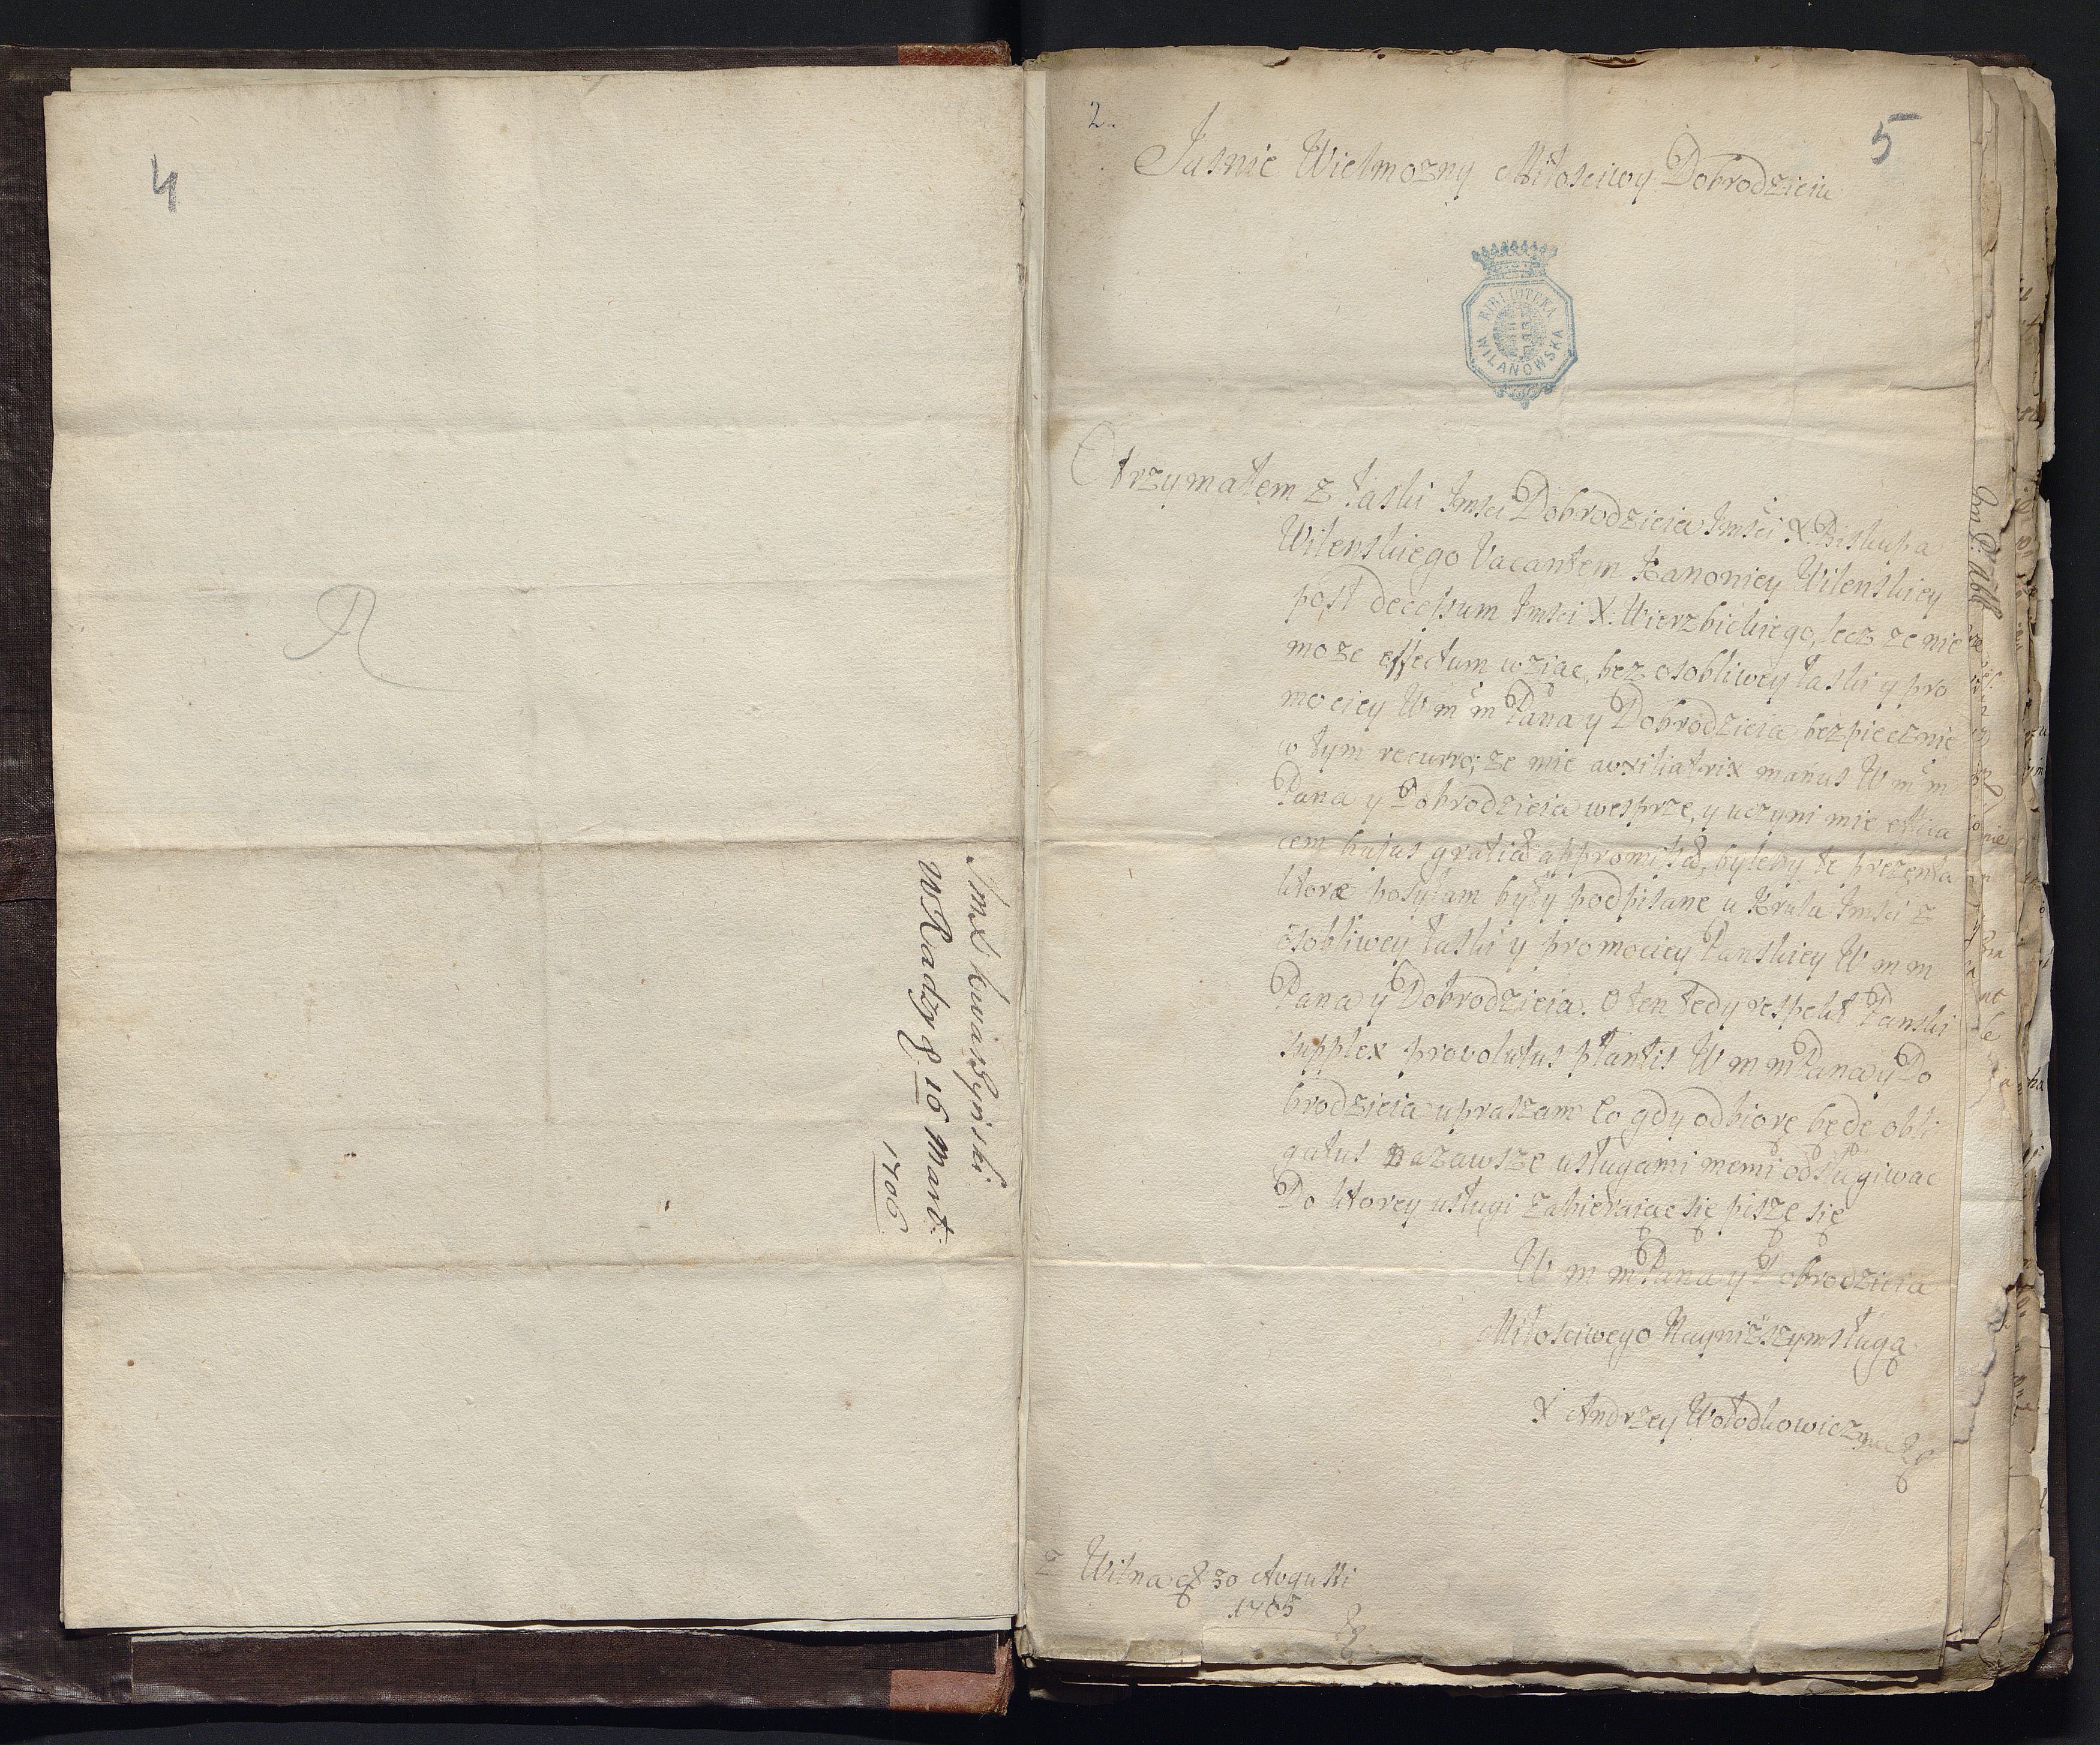 4
R
JmX Kwaszynski
W Radzy d. 16 Mart:
1706
2.
5
Jasnie Wielmozny Miłosciwy Dobrodzieiu
BIBLIOTEKA
WILANOWSKA
Otrzymałem z łaski Jmsci Dobrodzieia Jmści X. Biskupa
Wilenskiego Vacantem Kanoniey Wilenskiey
post decessum Jmsci X. Wierzbickiego, lecz ze nie
moze effectum wziąc, bez osobliwey łaski y pro
mociey W m m Pana y Dobrodzieia bezpiecznie
w tym recurro; ze mie auxiliatrix manus W m m
Pana y Dobrodzieia wesprze, y uczyni mie effica
cem hujus gratiæ appromisæ, byleby te prezenta
ktore posyłam były podpisane u Krola Jmsci z
osobliwey łaski y promociey Panskiey W m m
Pana y Dobrodzieia. O ten tedy respekt Panski
supplex provolutus plantis W m m Pana y Do
brodzieia upraszam Co gdy odbiorę będę obli
gatus nazawsze usługami memi odsługiwac
Do ktorey usługi zabieraiąc się piszę się
W m m Pana y Dobrodzieia
Miłosciwego Nayniższym sługą
X Andrzey Wołodkowicz
z Wilna d 30 Augusti
1705